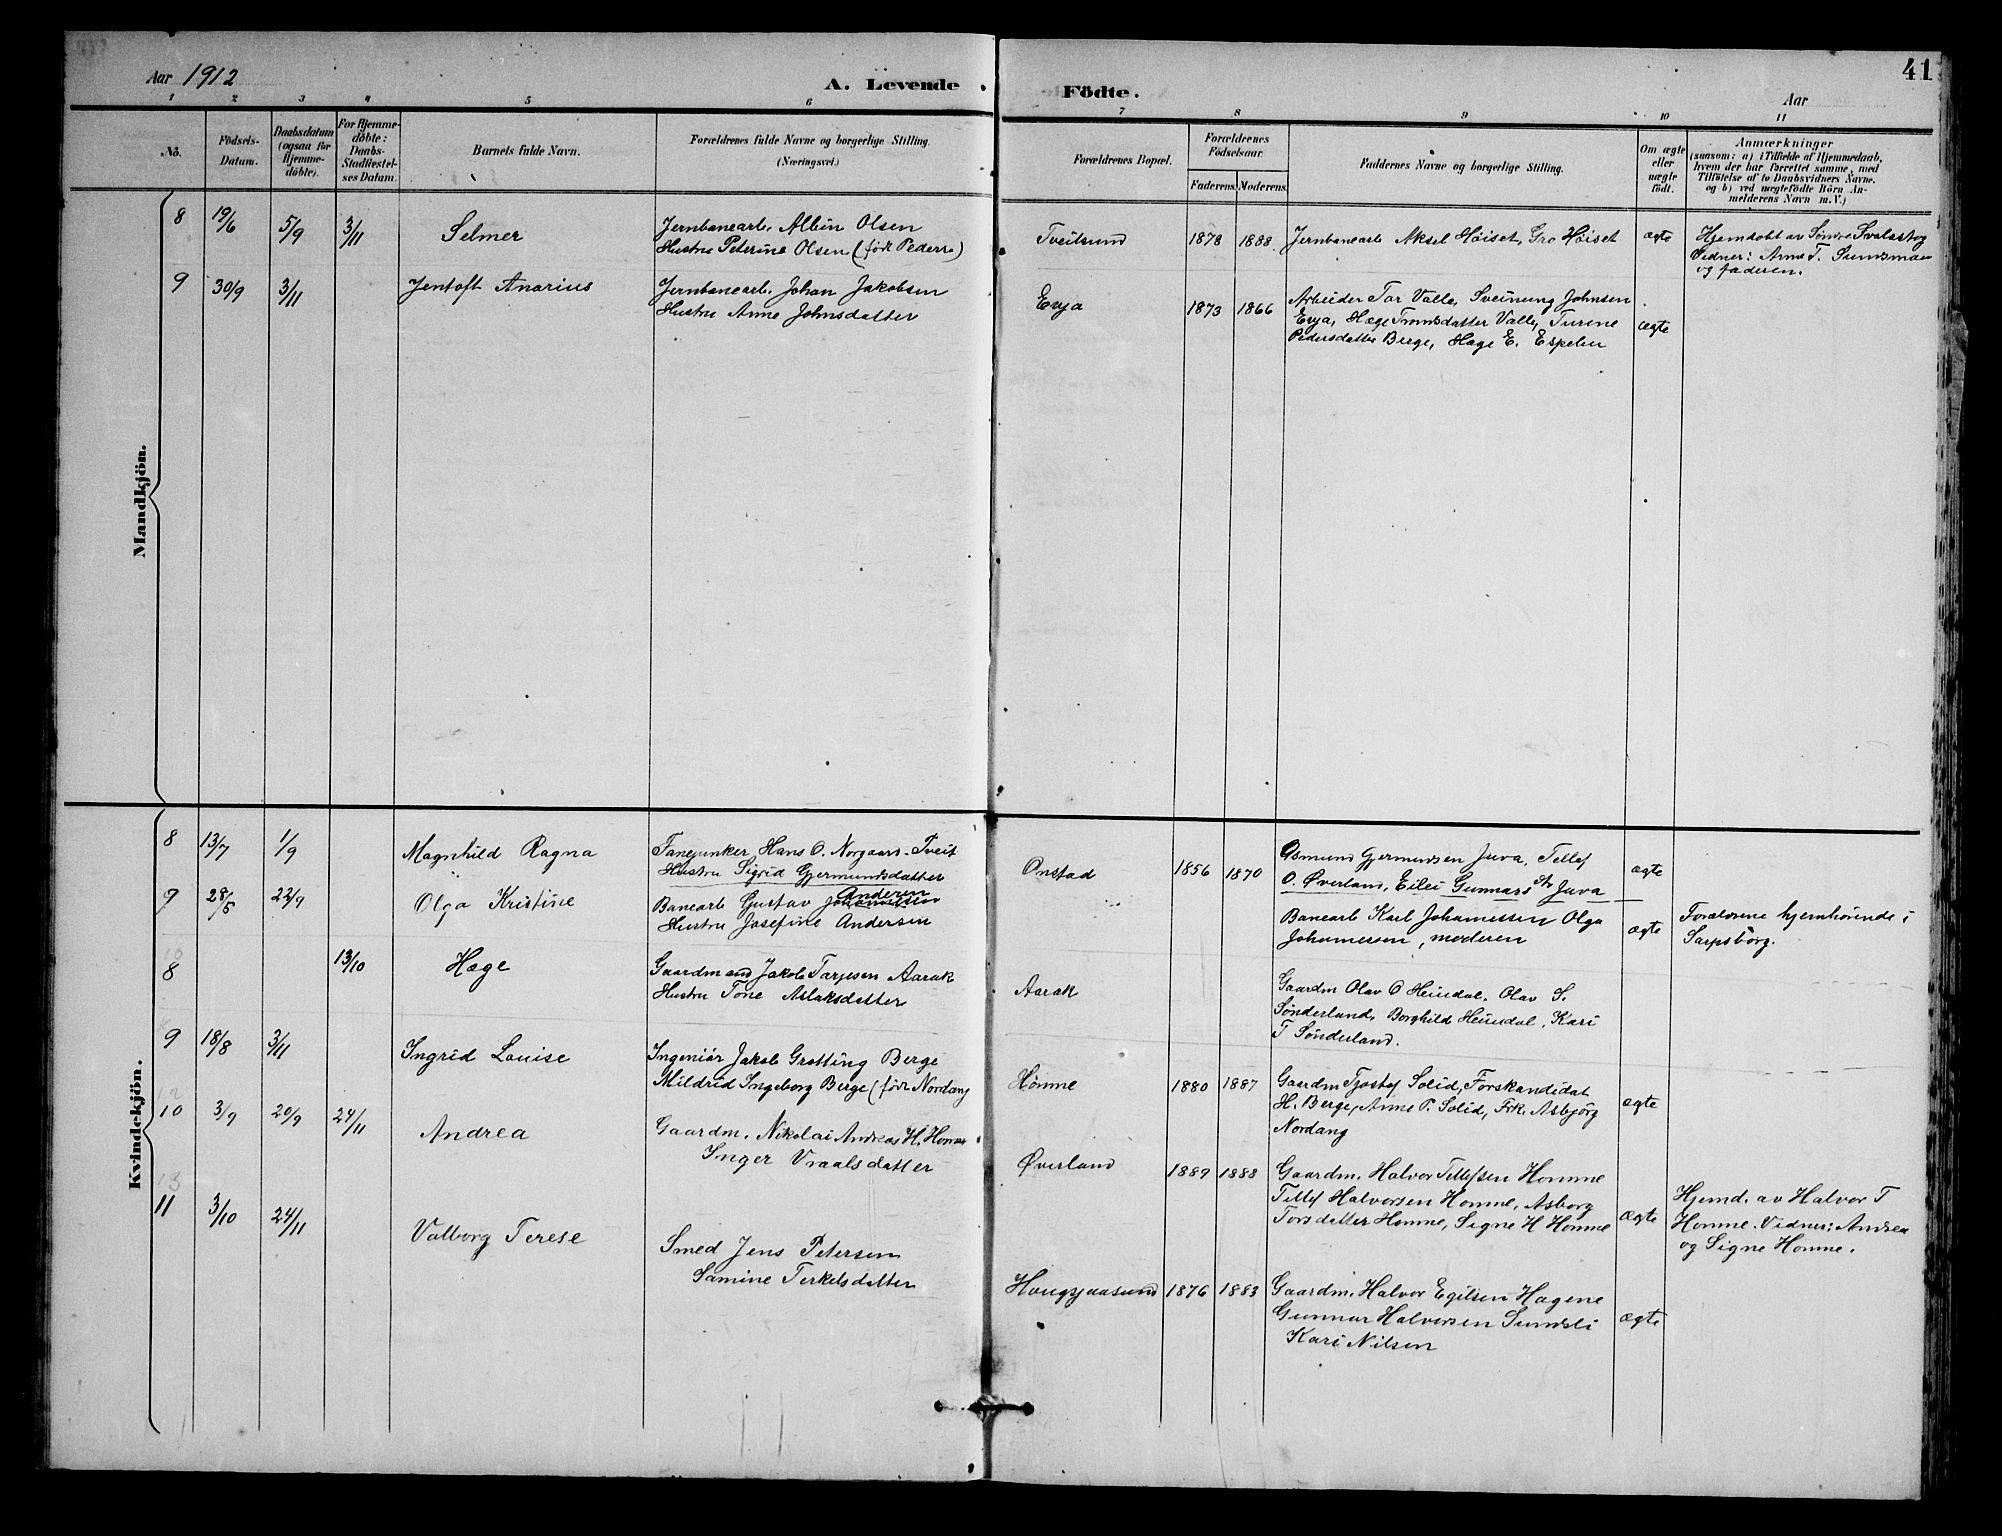 Aar 1912
A. Levende
Födte.
Aar
41
1 2 3 4 5 6 7 8 9 10 11
No.
Födsels-
Datum.
Daabsdatum
(ogsaa for
Hjemme-
döbte).
For Hjemme-
döbte:
Daabs-
Stadfæstel-
ses Datum.
Barnets fulde Navn.
Forældrenes fulde Navne og borgerlige Stilling.
(Næringsvei.)
Forældrenes Bopæl.
Forældrenes
Födselsaar.
Faderens. Moderens.
Faddernes Navne og borgerlige Stilling.
Om ægte
eller
uægte
födt.
Anmærkninger
(saasom: a) i Tilfælde af Hjemmedaab,
hvem der har forrettet samme, med
Tilföielse af to Daabsvidners Navne.
og b) ved uægtefödte Börn An-
melderens Navn m. V.)
Mandkjön.
8 19/6 5/9 3/11 Selmer
Jernbanearb. Albin Olsen
Hustru Peterine Olsen (født Peders)
Tveitsund
1878 1888
Jernbanearb Aksel Høiset, Gro Høiset
ægte
Hjemdøbt av Søndre Svalastog
Vidner: Arne T. Sundsmoen
og faderen.
9 30/9 3/11 Jentoft Anarius
Jernbanearb. Johan Jakobsen
Hustru Anne Johnsdatter
Evja
1873 1866
Arbeider Tor Valle, Sveinung Johnsen
Evja, Hæge Tromsdatter Valle, Turine
Pedersdatter Berge, Hage E. Espelin
ægte
Kvindekjön.
8 13/7 1/9 Magnhild Ragna
Fanejunker Hans O. Norgaard-Tveit
Hustru Sigrid Gjermundsdatter
Onstad
1856 1870
Osmund Gjermundsen Juva, Tellef
O. Øverland, Eilei Gunnarsdtr Juva
ægte
9 28/5 22/9 Olga Kristine
Banearb Gustav Andersen
Hustru Josefine Andersen
Banearb Karl Johannessen Olga
Johannessen, moderen
ægte
Forældrene hjemhørende i
Sarpsborg.
10
8 13/10 Hæge
Gaardmand Jakob Tarjesen Aarak
Hustru Tone Aslaksdatter
Aarak
Gaardm Olav O Heimdal, Olav S.
Sønderland, Borghild Heimdal, Kari
T Sønderland.
9 18/8 3/11 Ingrid Louise
Ingeniør Jakob Grotting Berge
Mildrid Ingeborg Berge (født Nordang
Homme
1880 1887
Gaardm Tjostof Solid, Forskandidat
H. Berge, Anne P. Solid, Frk. Asbjörg
Nordang
ægte
12
10 3/9 20/9 24/11 Andrea
Gaardm. Nikolai Andreas H. Homme
Inger Vraalsdatter
Øverland
1889 1888
Gaardm. Halvor Tellefsen Homme
Tellef Halvorsen Homme, Asborg
Torsdatter Homme, Signe H Homme
ægte
Hjemd. av Halvor T
Homme. Vidner: Andrea
og Signe Homme.
13
11 3/10 24/11 Valborg Terese
Smed Jens Petersen
Samine Terkelsdatter
Haugsjaasund
1876 1883
Gaardm. Halvor Egilsen Hagene
Gunnar Halvorsen Sundsli
Kari Nilsen
ægte